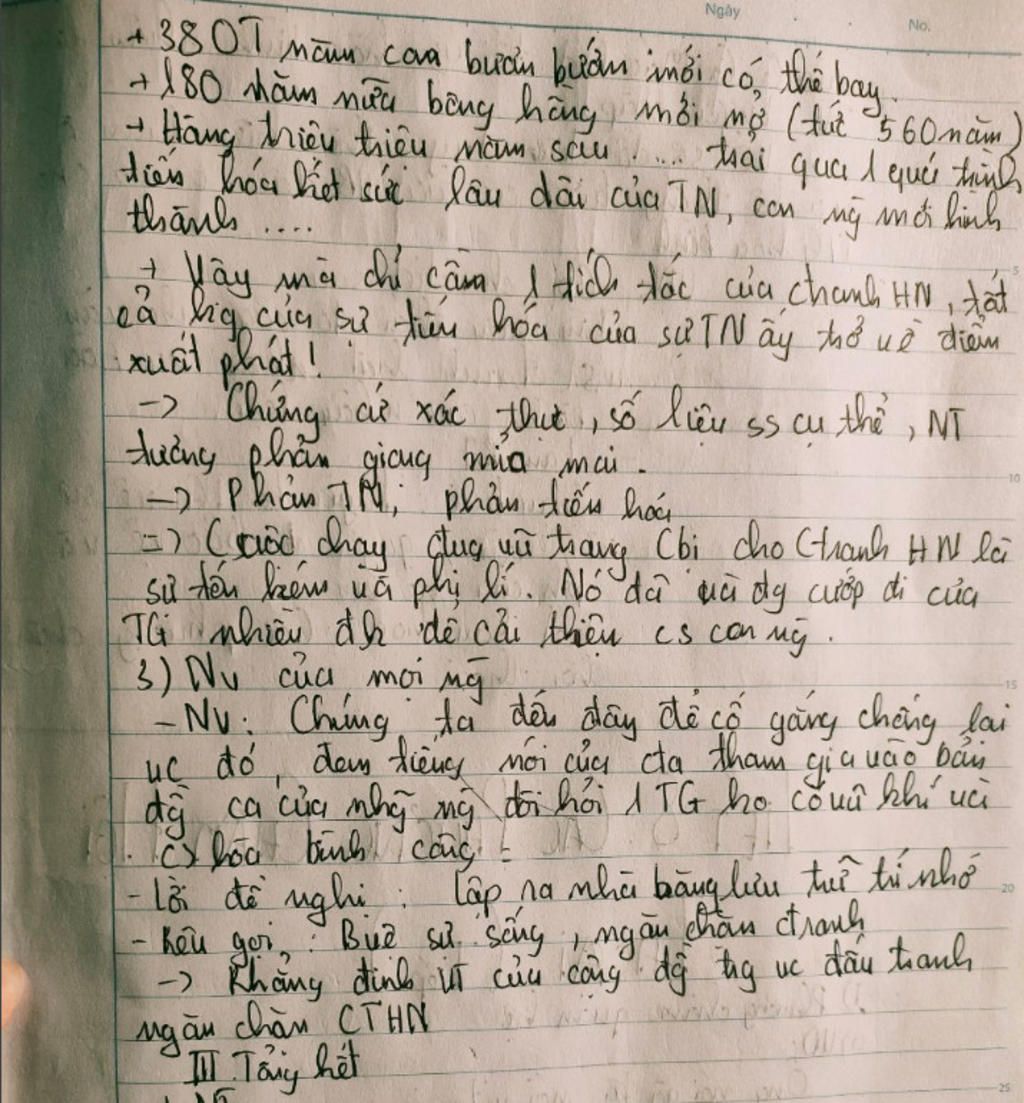 Ngày
No.
+ 380T năm con bươm bướm mới có thể bay.
+ 180 năm nữa bông hồng mới nở (tức 560 năm)
+ Hàng triệu triệu năm sau .... trải qua 1 quá trình
tiến hóa hết sức lâu dài của TN, con ng mới hình
thành ....
+ Vậy mà chỉ cần 1 tích tắc của ctranh HN, tất
cả kq của sự tiến hóa của sự TN ấy trở về điểm
xuất phát!
-> Chứng cứ xác thực, số liệu ss cụ thể, NT
tương phản giọng mỉa mai.
-> Phản TN, phản tiến hóa
=> Cuộc chạy đua vũ trang Cbị cho Ctranh HN là
sự tốn kém và phi lí. Nó đã và đg cướp đi của
TG nhiều đk để cải thiện cs con ng.
3) NV của mọi ng
- NV: Chúng ta đến đây để cố gắng chống lại
vc đó, đem tiếng nói của cta tham gia vào bản
đg ca của nhg ng đòi hỏi 1 TG ko có vũ khí và
c> hòa bình công =
- Lời đề nghị: lập ra nhà băng lưu trữ trí nhớ
- Kêu gọi: Bvệ sự sống, ngăn chặn ctranh
-> Khẳng định VT của cộng đg trg vc đấu tranh
ngăn chặn CTHN
III Tổng kết
5
10
15
20
25